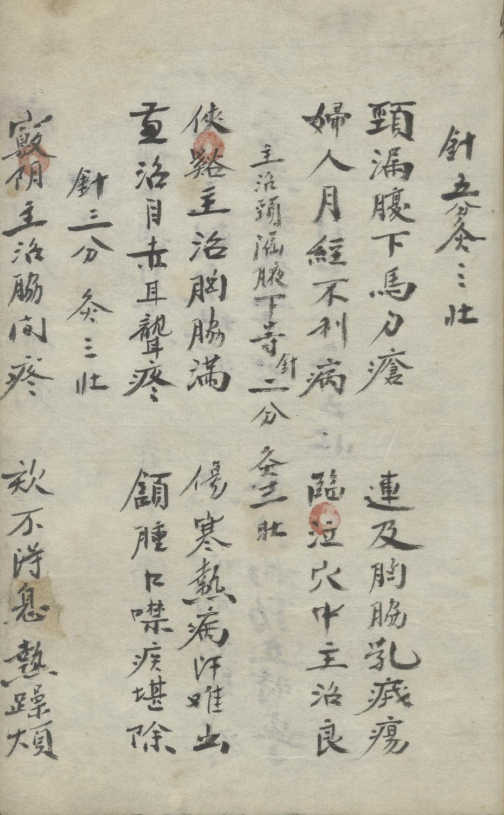 針五分灸三壮
頸漏腹下馬刀瘡 連及胸脇乳癰瘍
婦人月經不利病 臨泣穴中主治良
主治頸漏腋下等針二分 灸三壮
俠谿主治胸脇滿 傷寒熱病汗难出
兼治目赤耳聾疼 頷腫口噤疾堪除
針三分 灸三壮
竅阴主治脇间疼 欬不得息熱躁煩